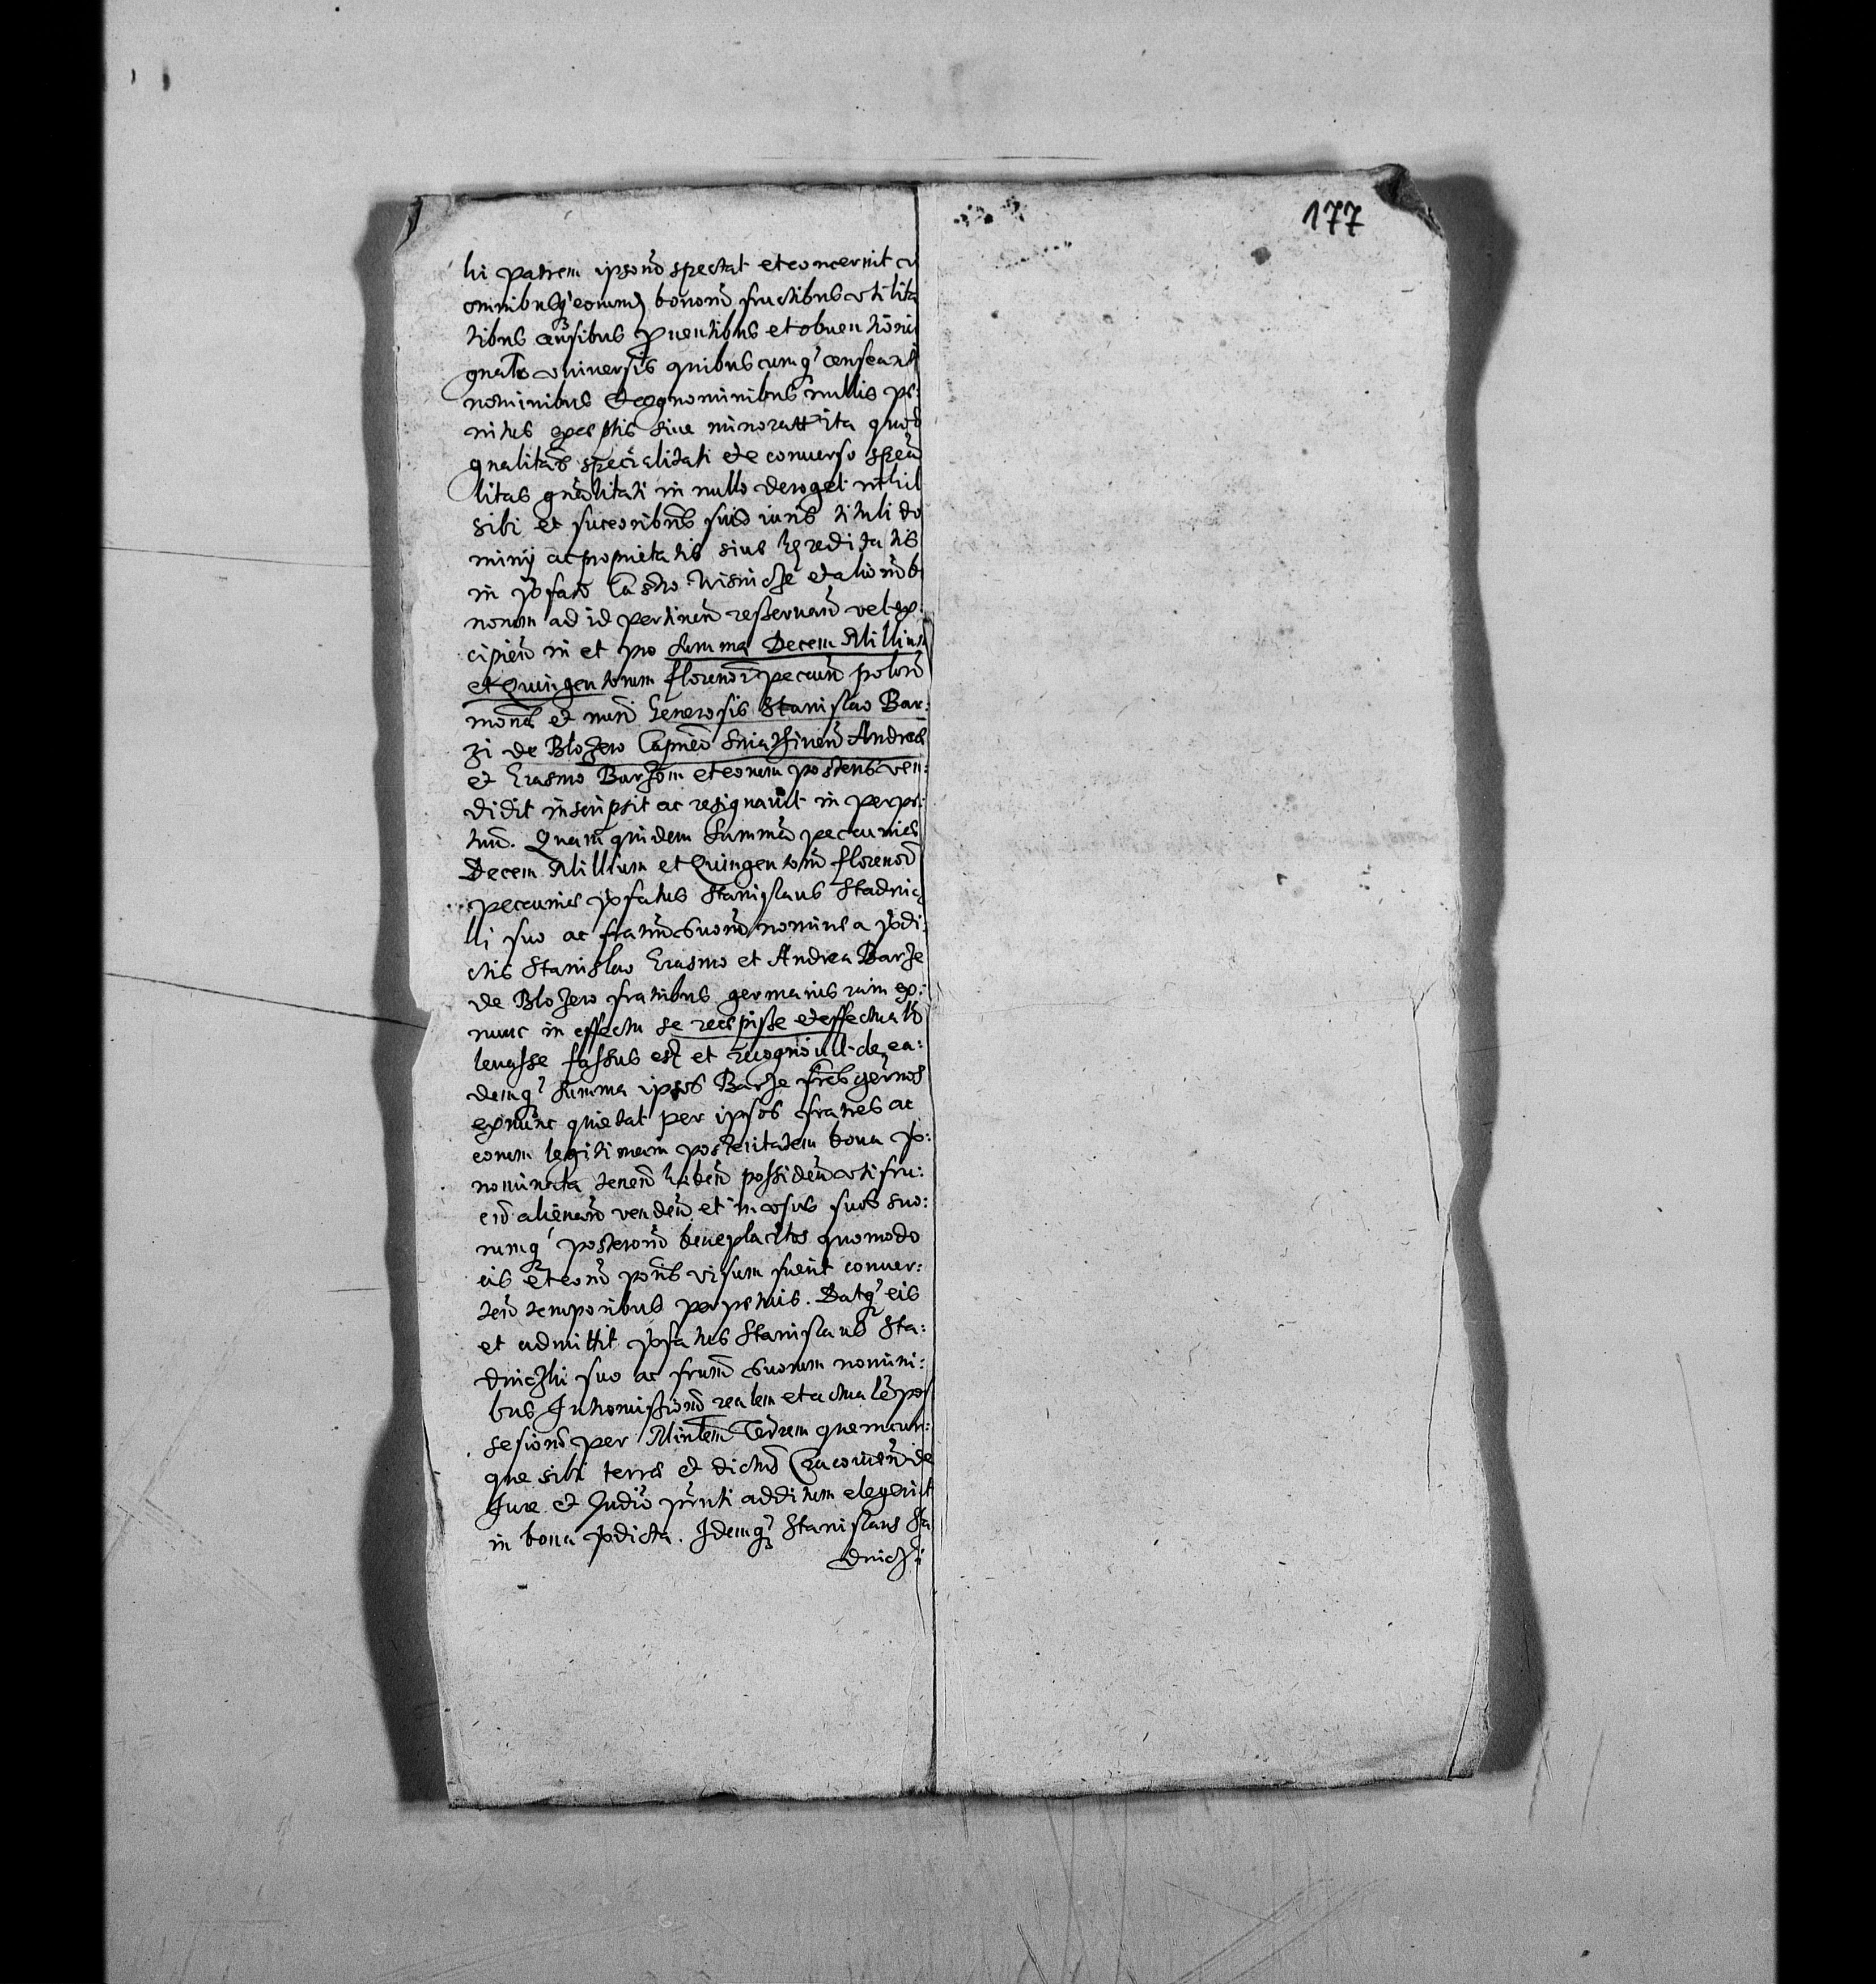 177
hi patrem ipsorū spectat et concernit cū
omnibusq̃ eorundē bonorū fructibus utilita
tibus censibus prouentibus et obuentioni
gnalr̄ vniuersis quibuscumq̃ censeant
nominibus et cognominibus nullis pe:
nitus exceptis siue minoratt ita quod
gnalitas specialitati et e conuerso specia
litas gnalitati in nullo deroget nihil
sibi et successoribus suis iuris tituli do
minij ac proprietatis siue hereditatis
in prefato Castro Wisnicze et aliorū bo
norum ad id pertineñ reseruand vel ex:
cipieñ in et pro summa Decem Millium
et Quingentorum florenorū pecuniē polonī
monetē et numī Generosis Stanislao Bar:
zi de Blozew Capneo Sniatineñ Andreē
et Erasmo Barzom et eorum posteris ven:
didit inscripsit ac resignauit in perpe:
tuū. Quam quidem summā pecuniē
Decem Millium et Quingentorū florenorū
pecunie p̄fatus Stanislaus Stadnicz
ki suo ac fratrū suorū nomine a p̄di:
ctis Stanislao Erasmo et Andrea Barze
de Blozew fratribus germanis iam ex:
nunc in effectu se recepisse et effectualr̄
leuasse fassus est et recognouit de ea:
demq̃ summa ipsos Barze fres germos
exnunc quietat per ipsos fratres ac
eorum legitimam posteritatem bona p̄:
nominata teneñ habeñ possideñ utifru:
eñ alienañ vendeñ et in vsus suos suo:
rumq̃ posterorū beneplacitos quomodo
eis et eorū poris visum fuerit conuer:
teñ temporibus perpetuis. Datq̃ eis
et admittit p̄fatus Stanislaus Sta:
dniczki suo ac frum suorum nomini:
bus Intromissionē realem et actualē pos
sesionē per Ministem Terrem quemcun:
que sibi terre et districtus Cracouieñ de
Jure et Judio prnti additum elegerint
in bona p̄dicta. Idemq̃ Stanislaus Sta
dniczki